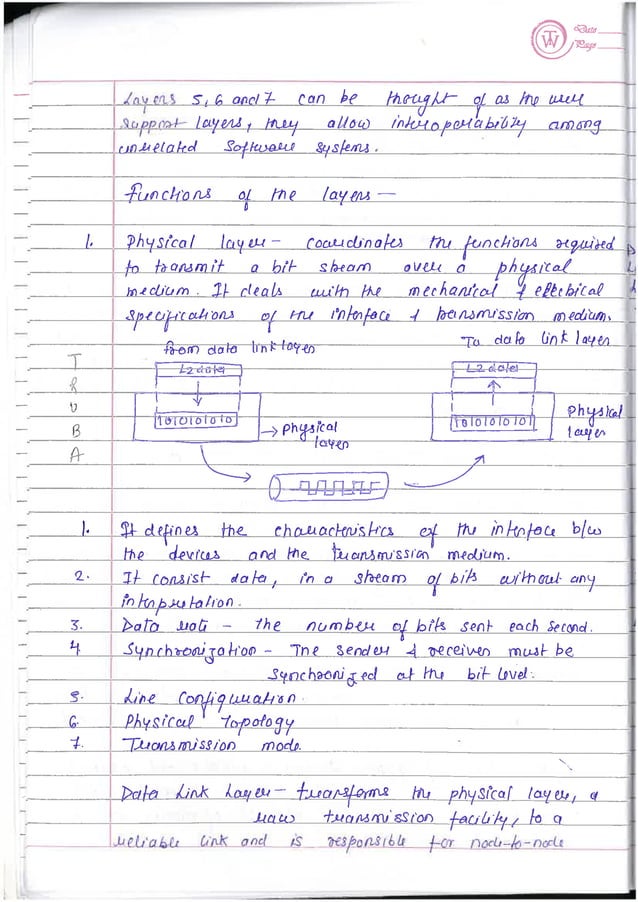 Date
Page
TW
Layers 5, 6 and 7 can be thought of as the user
support layers, they allow interoperability among
unrelated software systems.
Functions of the layers —
1. Physical layer - coordinates the functions required
to transmit a bit stream over a physical
medium. It deals with the mechanical & electrical
specifications of the interface & transmission medium.
from data link layer
To data link layer
L2 data
L2 data
10101010
10101010
→ physical
layer
physical
layer
T
R
U
B
A
1. It defines the characteristics of the interface b/w
the devices and the transmission medium.
2. It consist data, in a stream of bits without any
interpretation.
3. Data rate - the number of bits sent each second.
4 Synchronization - The sender & receiver must be
synchronized at the bit level.
5. Line Configuration.
6. Physical Topology
7. Transmission mode.
Data Link Layer - transforms the physical layer, a
raw transmission facility, to a
reliable link and is responsible for node-to-node